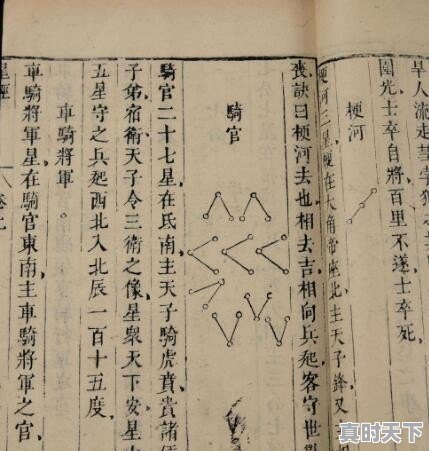 旱人流走
圍光士卒自將百里不遂士卒死
梗河
梗河三星在大角帝座北主天子鋒又
喪訣曰梗河去也相去吉相向兵起客守世
騎官
騎官二十七星在氐南主天子騎虎賁貴諸
子弟宿衛天子令三衛之像星眾天下安星
五星守之兵起西北入北辰一百十五度
車騎將軍
車騎將軍星在騎官東南主車騎將軍之官
星經
真时天下